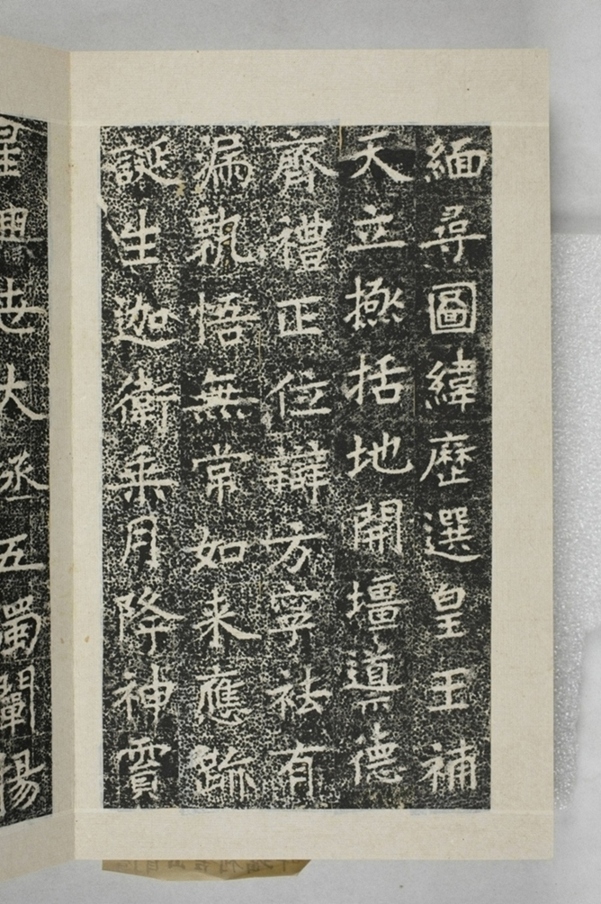 緬尋圖緯歷選皇王補
天立極括地開壃導德
齊禮正位辯方寧祛有
漏孰悟無常如来應跡
誕生迦衛乘月降神霣
星興世大丞五濁闡揚